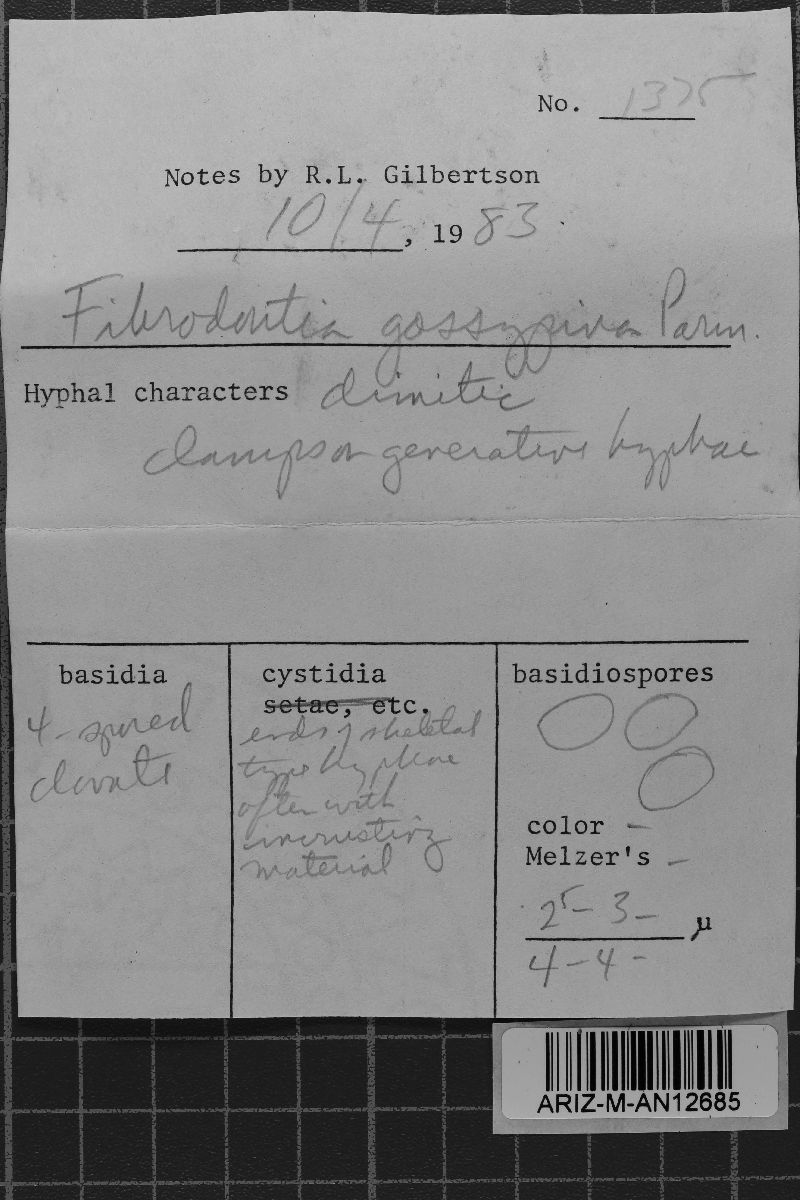 No. 1375
Notes by R.L. Gilbertson
10/4, 1983
Fibrodontia gossypina Parm.
Hyphal characters dimitic
clamps on generative hyphae
basidia
4-spored
clavate
cystidia
setae, etc.
ends of skeletal
type hyphae
often with
incrusting
material
basidiospores
color –
Melzer's –
25– 3– µ
4–4–
ARIZ-M-AN12685